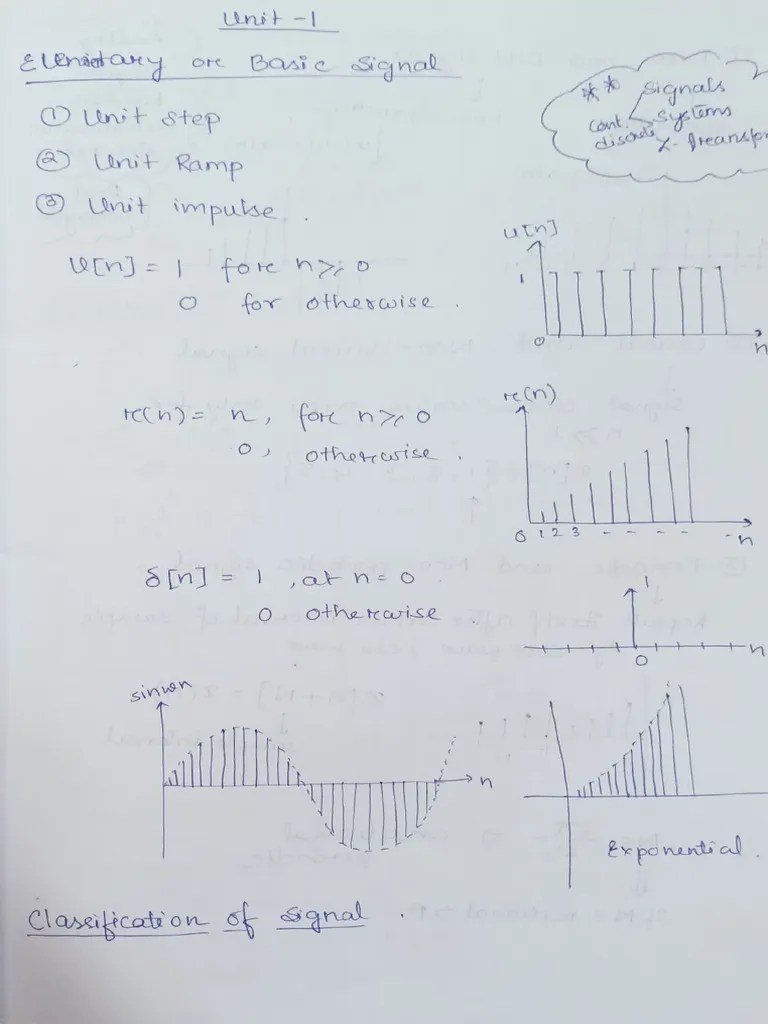 Unit -1
or Basic Signal
① Unit Step
② Unit Ramp
③ Unit impulse.
** Signals
cont. Systems
discrete
U[n] = 1 for n ≥ 0
0 for otherwise.
u[n]
1
0
n
r(n) = n, for n ≥ 0
0, otherwise.
r(n)
0 1 2 3 - - - - - n
δ[n] = 1, at n = 0
0 otherwise
1
0
n
sinwn
n
Exponential.
Classification of Signal.